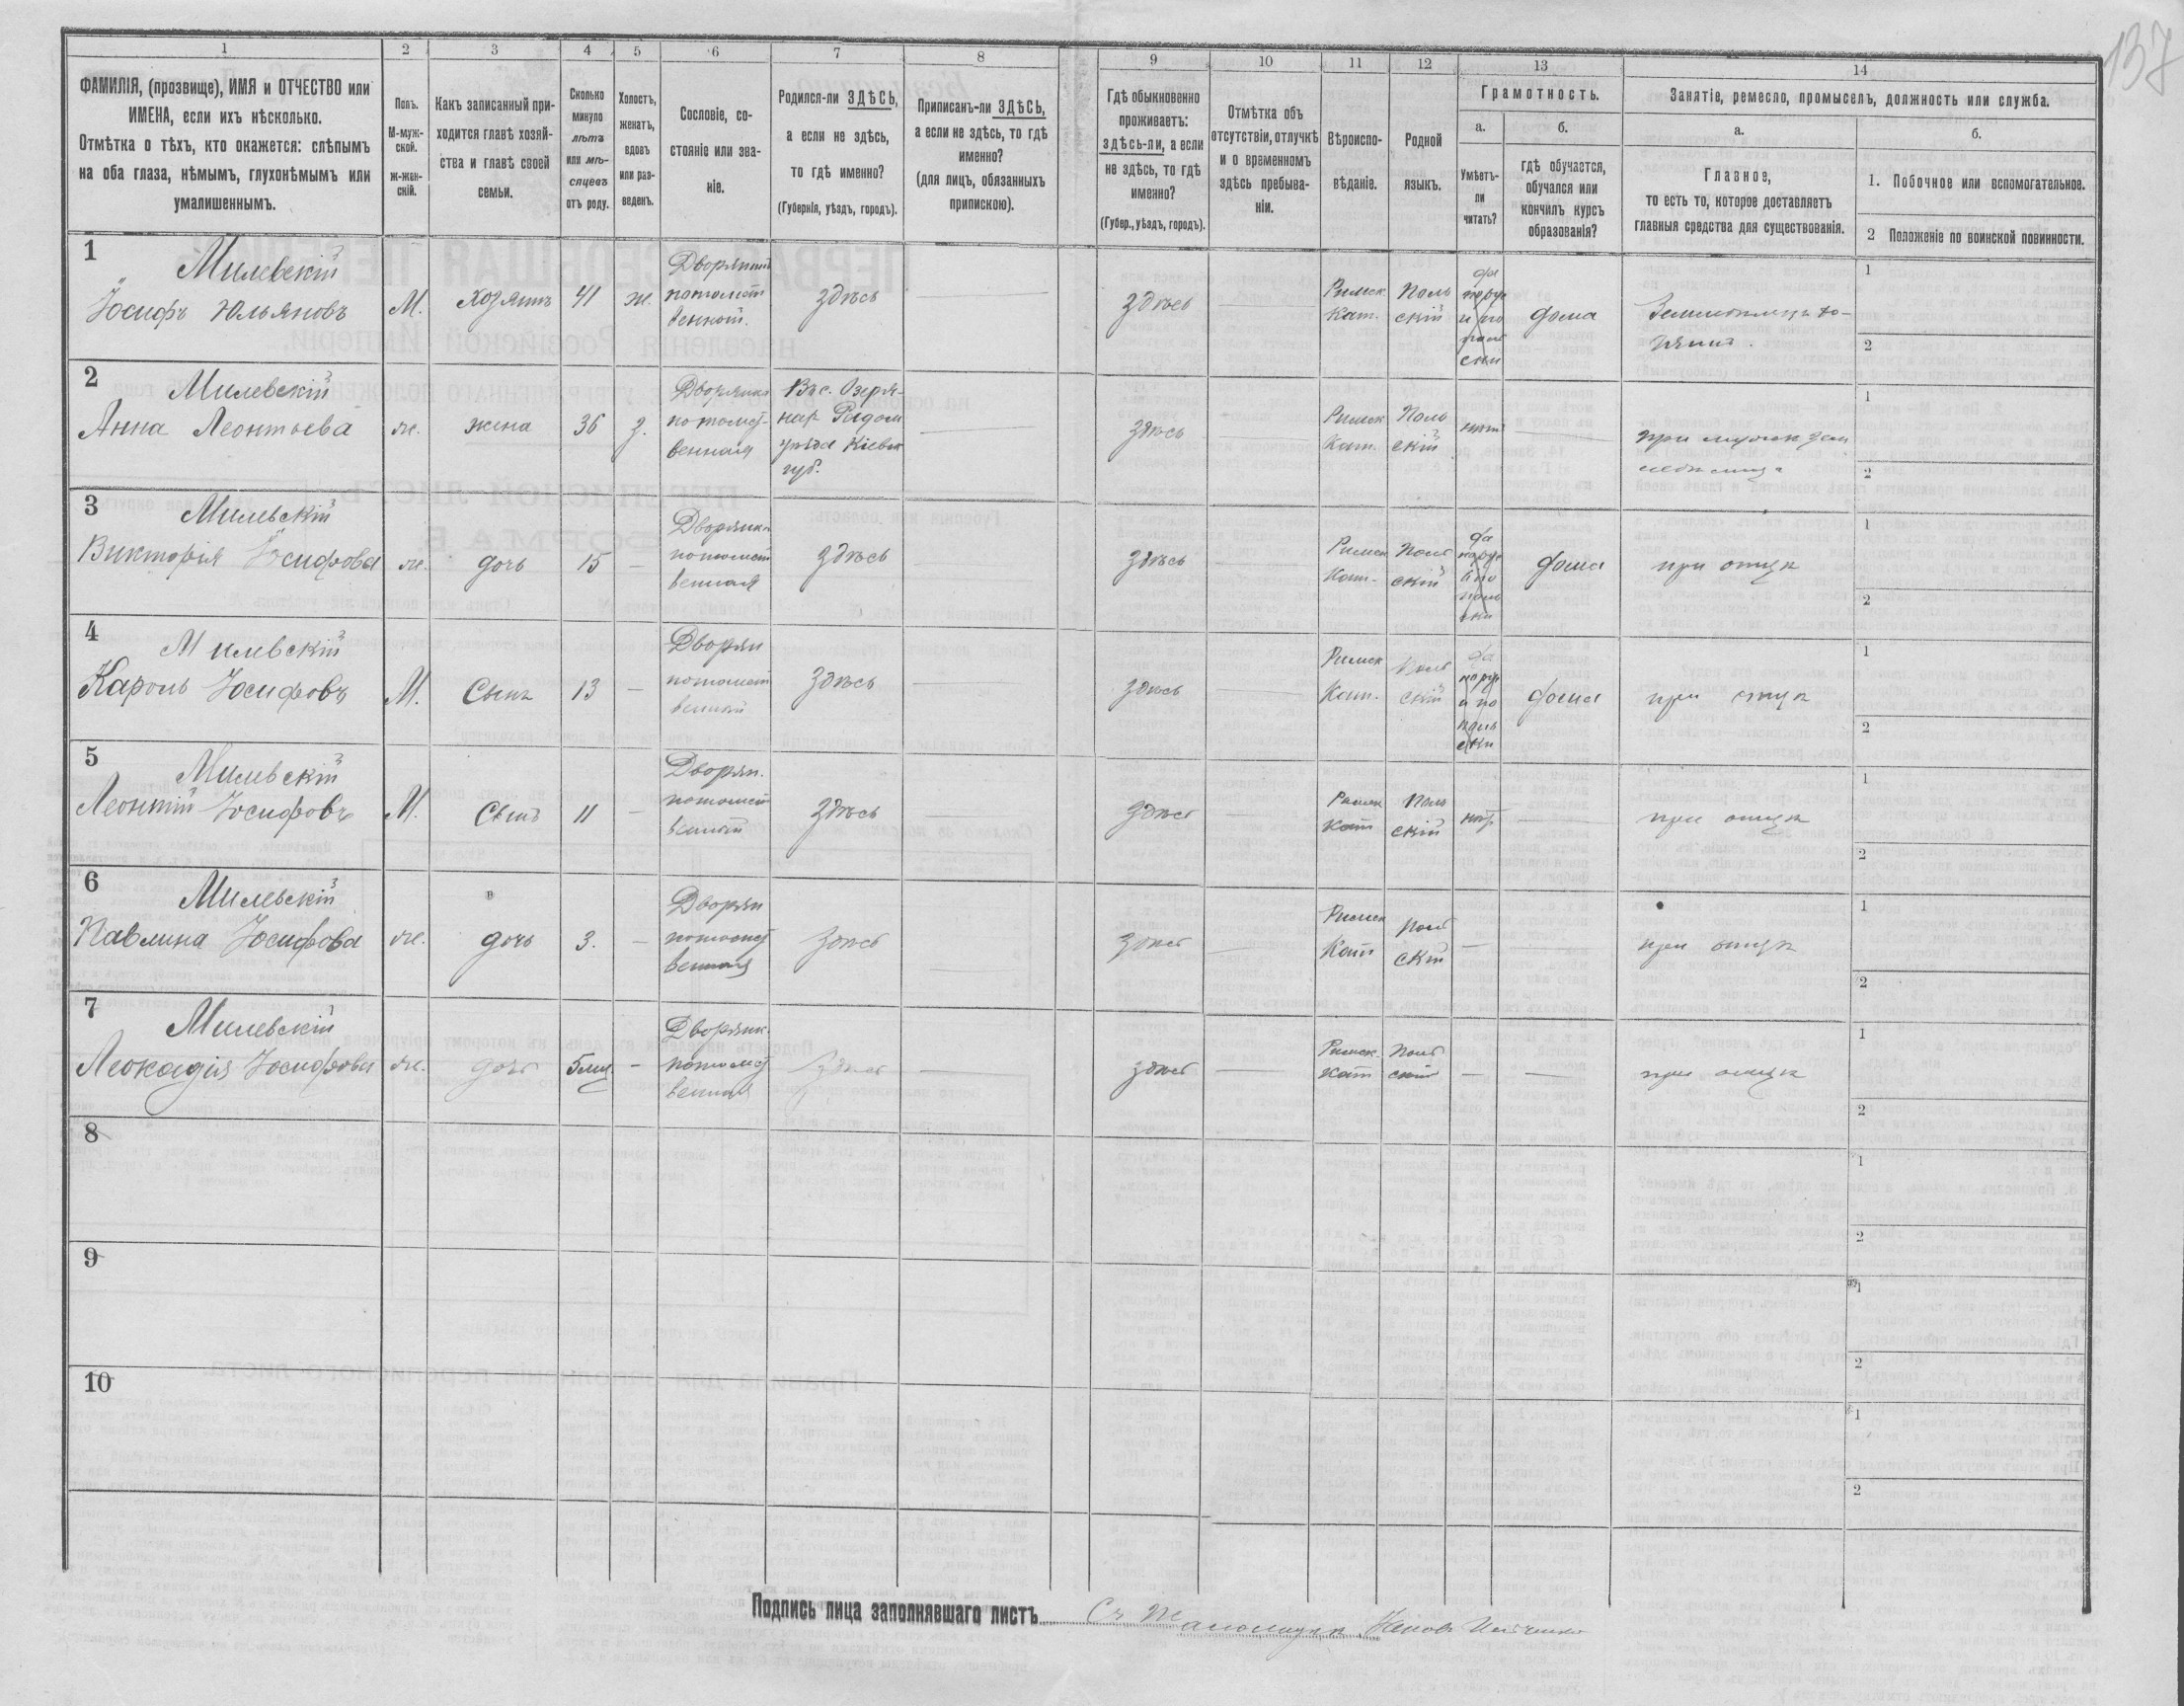 137
1 2 3 4 5 6 7 8 9 10 11 12 13 14
ФАМИЛІЯ, (прозвище), ИМЯ и ОТЧЕСТВО или
ИМЕНА, если ихъ нѣсколько.
Отмѣтка о тѣхъ, кто окажется: слѣпымъ
на оба глаза, нѣмымъ, глухонѣмымъ или
умалишеннымъ.
Полъ.
М-муж-
ской.
ж-жен-
скій.
Какъ записанный при-
ходится главѣ хозяй-
ства и главѣ своей
семьи.
Сколько
минуло
лѣтъ
или мѣ-
сяцевъ
отъ роду.
Холостъ,
женатъ,
вдовъ
или раз-
веденъ.
Сословіе, со-
стояніе или зва-
ніе.
Родился-ли ЗДѢСЬ,
а если не здѣсь,
то гдѣ именно?
(Губернія, уѣздъ, городъ).
Приписанъ-ли ЗДѢСЬ,
а если не здѣсь, то гдѣ
именно?
(для лицъ, обязанныхъ
припискою).
Гдѣ обыкновенно
проживаетъ:
здѣсь-ли, а если
не здѣсь, то гдѣ
именно?
(Губер., уѣздъ, городъ).
Отмѣтка объ
отсутствіи, отлучкѣ
и о временномъ
здѣсь пребыва-
ніи.
Вѣроиспо-
вѣданіе.
Родной
языкъ.
Грамотность.
а.
Умѣетъ-
ли
читать?
б.
гдѣ обучается,
обучался или
кончилъ курсъ
образованія?
Занятіе, ремесло, промыселъ, должность или служба.
а.
Главное,
то есть то, которое доставляетъ
главныя средства для существованія.
б.
1. Побочное или вспомогательное.
2 Положеніе по воинской повинности.
1
Милевскій
Іосифъ Юльяновъ
М.
хозяинъ
41
ж.
Дворянинъ
потомст
венной.
здѣсь
здѣсь
Римск
Кат.
Поль
скій
да
по рус
и по
поль
ски
дома
1
2
2
Милевскій
Анна Леонтьева
ж.
жена
36
з.
Дворянка
потомст-
венная
уѣзда Кіевск
губ.
здѣсь
Римск
Кат.
Поль
скій
нѣт
1
2
3
Милевскій
Викторія Іосифова
ж.
дочь
15
Дворянка
потомст
венная
здѣсь
здѣсь
Римск
Кат.
Поль
скій
да
по рус
и по
поль
ски
дома
при отцѣ
1
2
4
Милевскій
Кароль Іосифовъ
М.
Сынъ
13
Дворян
потомст
венный
здѣсь
здѣсь
Римск
Кат.
Поль
скій
да
по рус
и по
поль
ски
дома
при отцѣ
1
2
5
Милевскій
Леонтій Іосифовъ
М.
Сынъ
11
Дворян.
потомст
венный
здѣсь
здѣсь
Римск
Кат
Поль
скій
нѣт
при отцѣ
1
2
6
Милевскій
Павлина Іосифова
ж.
дочь
3.
Дворян
потомст
венная
здѣсь
здѣсь
Римск
Кат
Поль
скій
при отцѣ
1
2
7
Милевскій
Леокадія Іосифова
ж.
дочь
5 мц
Дворянк.
потомст
венная
здѣсь
здѣсь
Римск.
Кат
Поль
скій
при отцѣ
1
2
8
1
2
9
1
2
10
1
2
Подпись лица заполнявшаго листъ